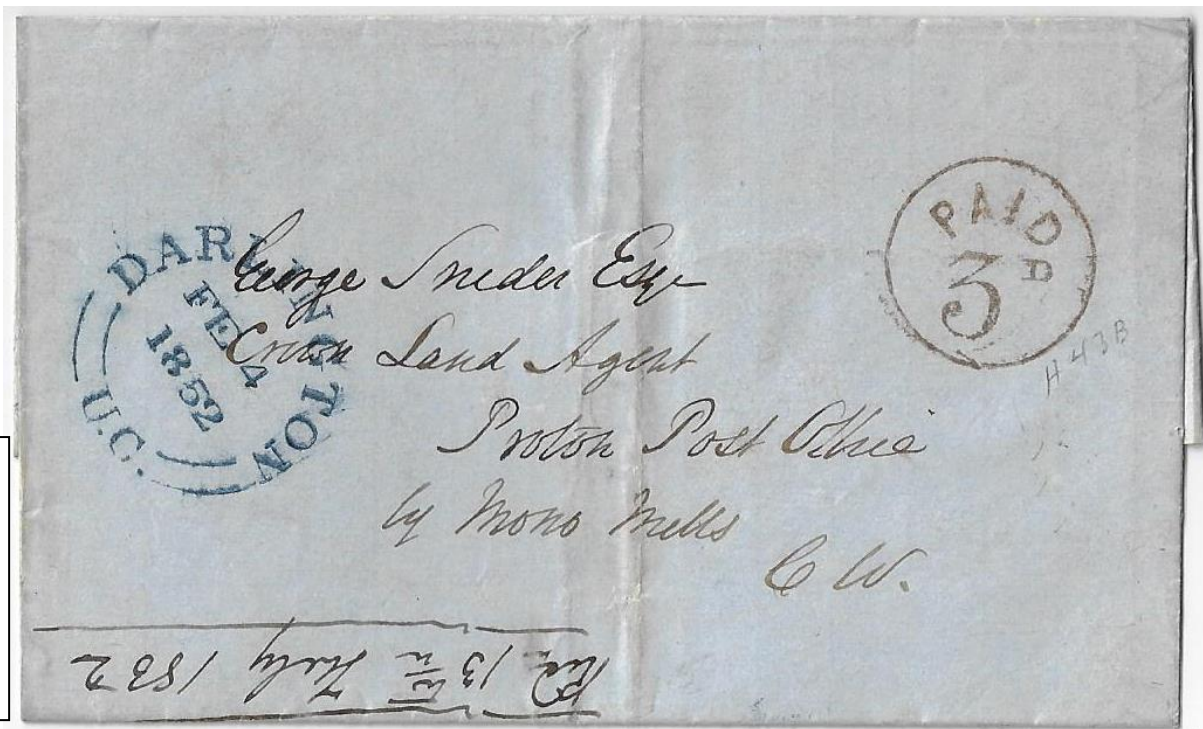 DARLINGTON
FE 4
1852
U.C.
PAID
3
D
H43B
George Snider Esqr
Crown Land Agent
Proton Post Office
by Mono Mills
C W.
13th Feby 1852